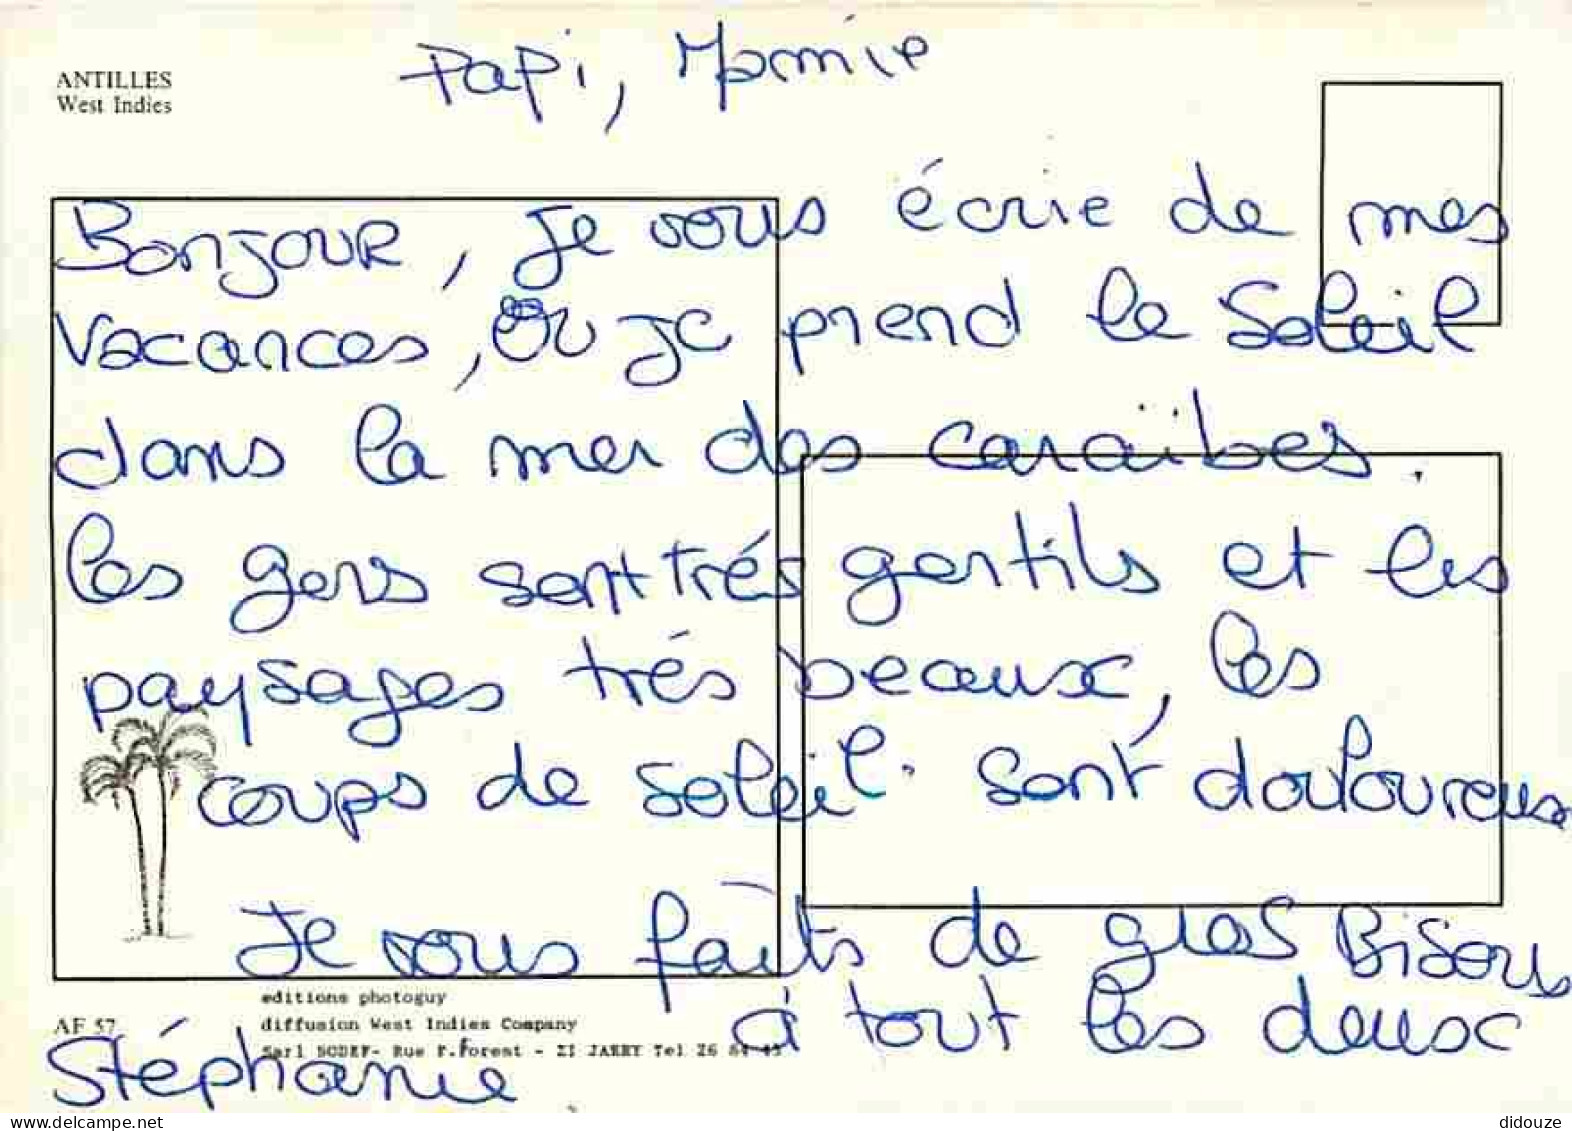 ANTILLES
West Indies
Papi, Mamie
Bonjour, Je vous écrie de mes
vacances, Ou je prend le Soleil
dans la mer des caraïbes.
les gens sont trés gentils et les
paysages trés beaux, les
coups de soleil. sont douloureux
Je vous faits de gros Bisous
à tout les deux
editions photoguy
AF 57
diffusion West Indies Company
Sarl SODEF- Rue F.Forest - ZI JARRY Tel 26 84 45
Stéphanie
www.delcampe.net
didouze